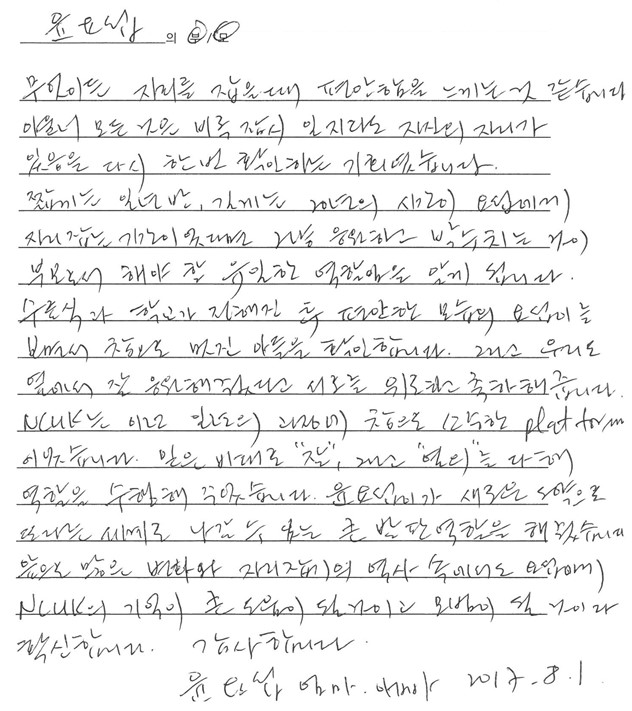 윤요섭 의 부/모
무엇이든 자리를 잡을때 편안함을 느끼는 것 같습니다
아울러 모든 것은 비록 잠시 일지라도 자신의 자리가
있음을 다시 한번 확인하는 기회였습니다.
짧게는 일년 반, 길게는 20년의 시간이 요섭에게
자리 잡는 기간이었다면 그를 응원하고 박수치는 것이
부모로서 해야 할 유일한 역할임을 알게 됩니다.
수료식과 학교가 정해진 후 편안한 모습의 요섭이를
보면서 참으로 멋진 아들을 확인합니다. 그리고 우리도
옆에서 잘 응원해주었다고 서로를 위로하고 축하해줍니다.
NCUK는 이러한 일련의 과정에 참으로 platform
이었습니다. 믿은 바대로 "잘", 그리고 "열의"를 다해
역할을 수행해 주었습니다. 윤요섭이가 새로운 도약으로
또다른 세계로 나갈 수 있는 큰 발판역할을 해 주었습니다
앞으로 많은 변화와 자리잡기의 역사 속에서도 요섭에게
NCUK의 기억이 큰 도움이 될 것이고 모범이 될 것이라
확신합니다. 감사합니다.
윤요섭 엄마. 아빠 2017. 8. 1